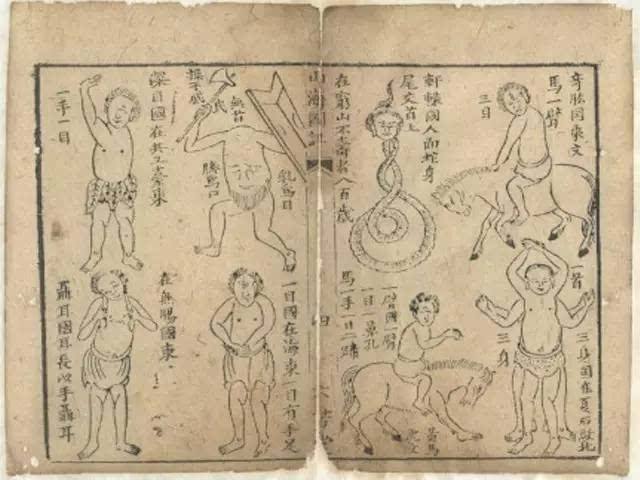 奇肱國東文
馬一臂
三目
軒轅國人面蛇身
尾交首上
在窮山不壽者八百歲
一首
三身
三身國在夏后啟北
一臂國一臂
一目一鼻孔
馬一手一目二蹄
黃馬
虎文
山海
四
無首
操干戚
乳為目
臍為口
深目國在共工臺東
一手一目
一目國在海東一目有手足
在無腸國東
聶耳國耳長以手聶耳